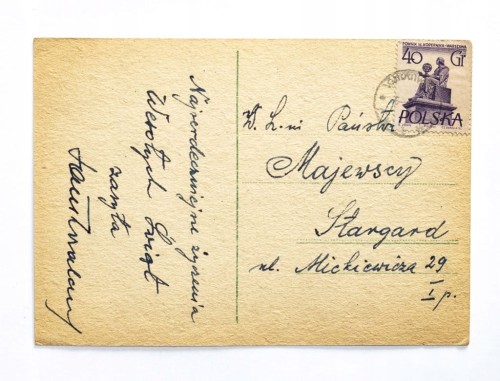 Najserdeczniejsze życzenia
Wesołych Świąt
zasyła
40 Gr
POLSKA
W. L. ni Państwo
Majewscy
Stargard
ul. Mickiewicza 29
I p.